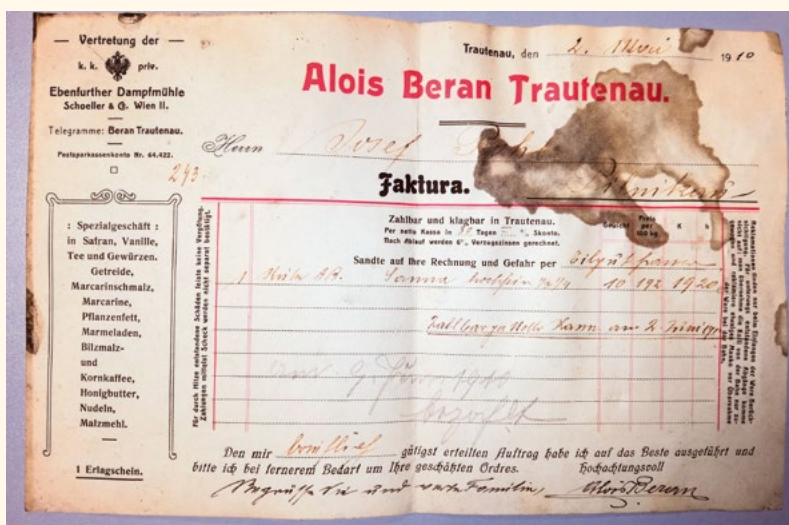 — Vertretung der —
k. k. priv.
Ebenfurther Dampfmühle
Schoeller & Co. Wien II.
Telegramme: Beran Trautenau.
Postsparkassenkonto Nr. 64.422.
243
: Spezialgeschäft :
in Safran, Vanille,
Tee und Gewürzen.
Getreide,
Marcarinschmalz,
Marcarine,
Pflanzenfett,
Marmeladen,
Bilzmalz-
und
Kornkaffee,
Honigbutter,
Nudeln,
Malzmehl.
1 Erlagschein.
Trautenau, den 2. Mai 1910
Alois Beran Trautenau.
Herrn Josef
Pilnikau
Faktura.
Zahlbar und klagbar in Trautenau.
Per netto Kasse in Tagen % Skonto.
Nach Ablauf werden 6% Verzugszinsen gerechnet.
Gewicht Preis per 100 kg K h
Sandte auf Ihre Rechnung und Gefahr per Eilgut franco
1 Kiste AB. 10 192 1920
am 9. Juni 1910
bezahlt
Für durch Hitze entstandene Schäden leiste keine Vergütung.
Zahlungen mittelst Scheck werden nicht separat bestätigt.
Den mir gütigst erteilten Auftrag habe ich auf das Beste ausgeführt und
bitte ich bei fernerem Bedarf um Ihre geschätzten Ordres. Hochachtungsvoll
Begrüsse Sie und werte Familie, Alois Beran